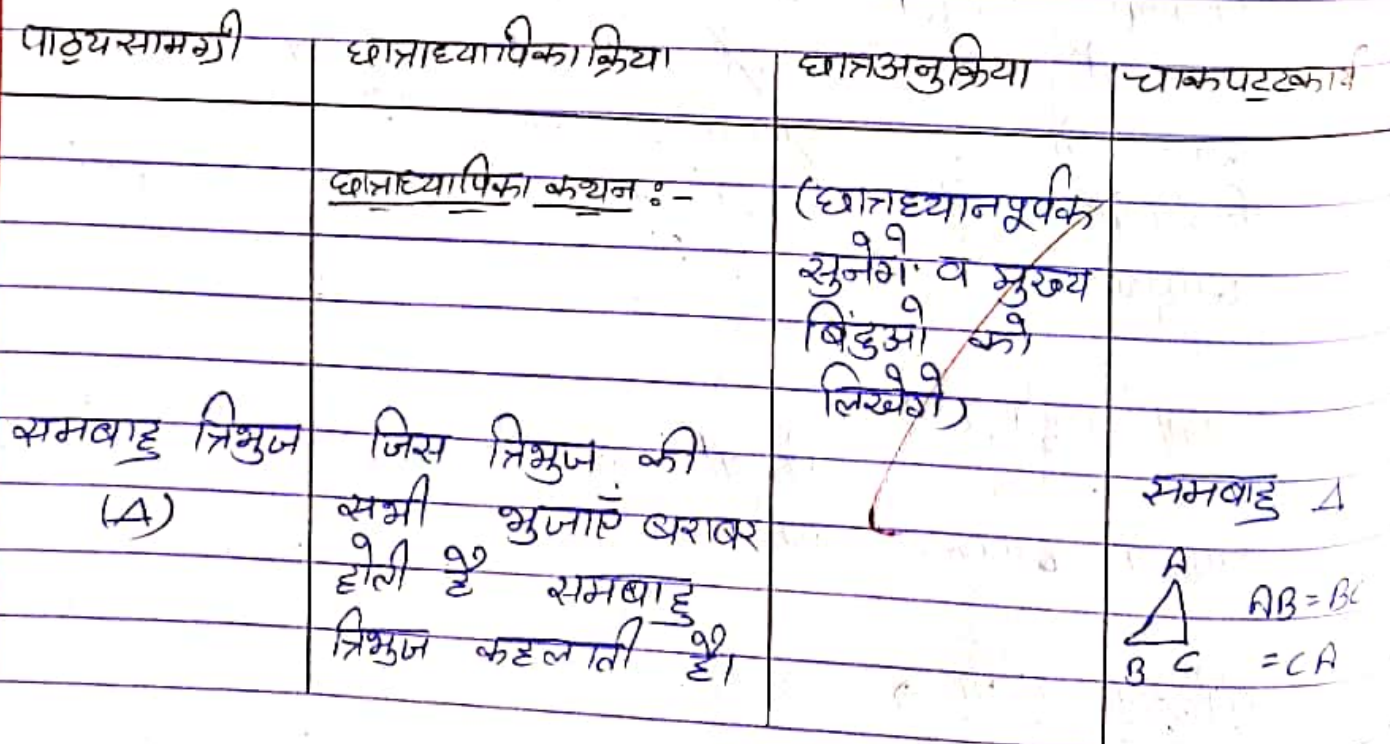 पाठ्यसामग्री छात्राध्यापिका क्रिया छात्रअनुक्रिया चाकपट्टकार्य
छात्राध्यापिका कथन :-
(छात्रध्यानपूर्वक
सुनेगे व मुख्य
बिंदुओ को
लिखेगे)
समबाहु त्रिभुज
(Δ)
जिस त्रिभुज की
सभी भुजाएँ बराबर
होती है समबाहु
त्रिभुज कहलाती है।
समबाहु Δ
A
AB = BC
B C = CA